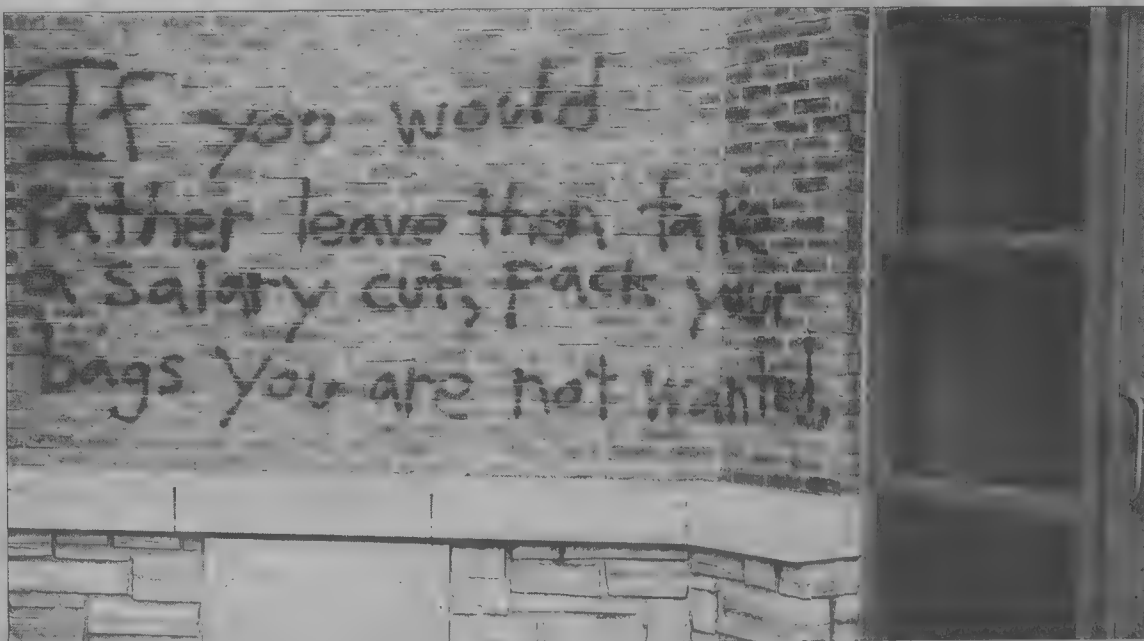 If you would
rather leave then take
a Salary cut, pack your
bags you are not wanted.